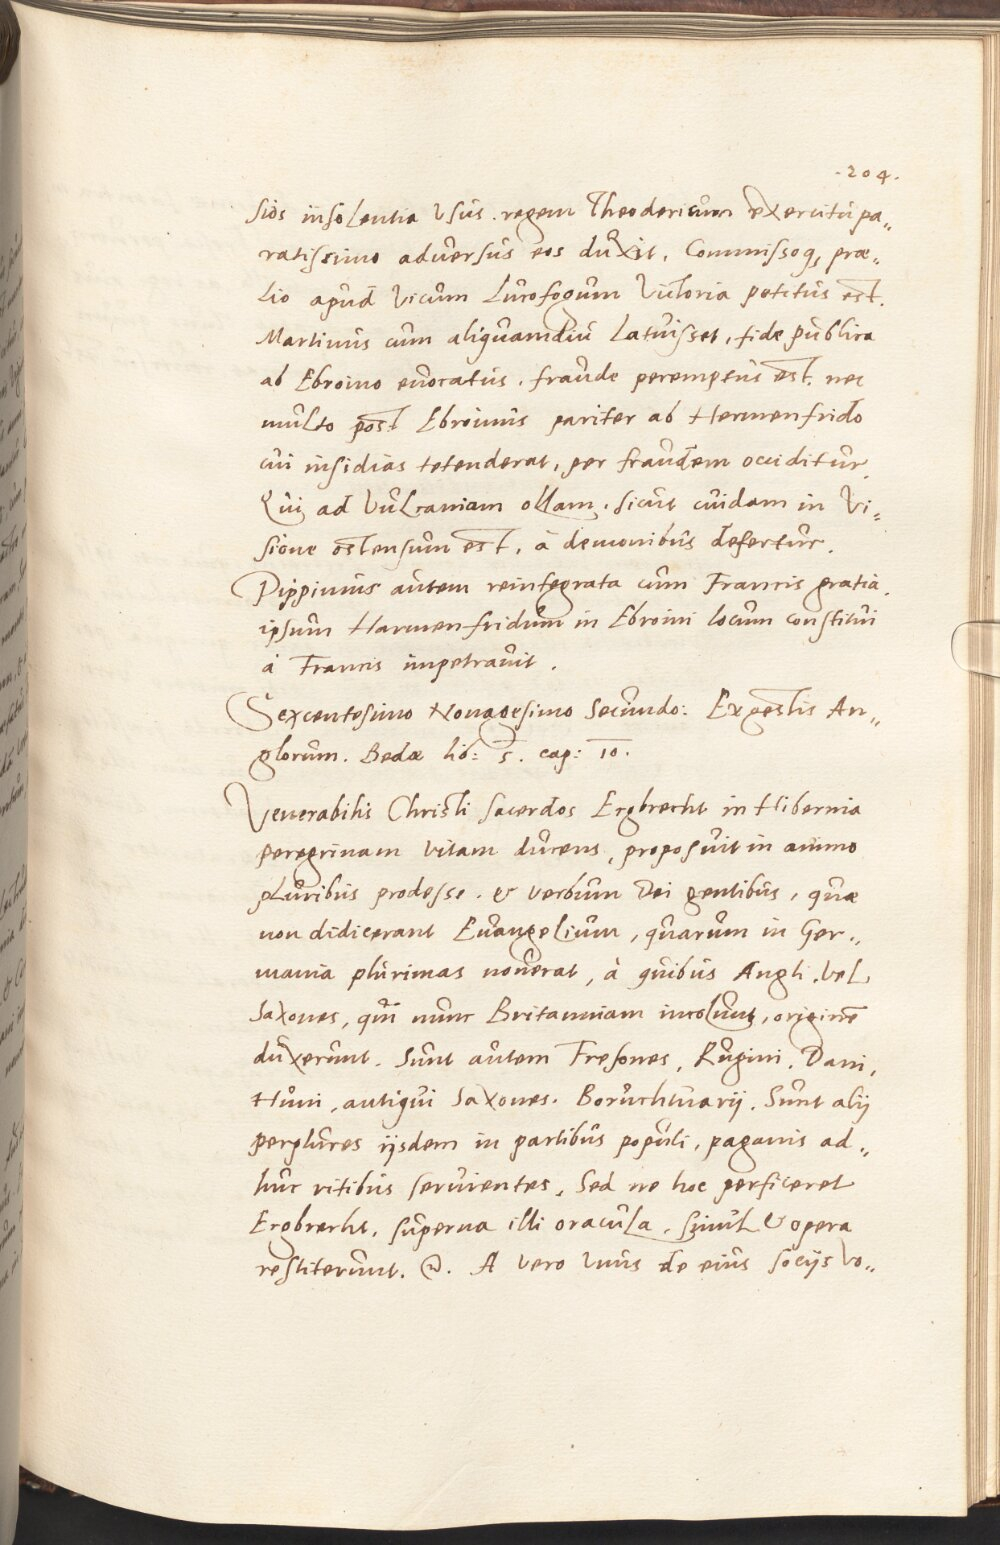 .204.
sios insolentia Usus. regem Theodericum exercitu pa„
ratissimo adversus eos duxit, Commissoq, præ„
lio apud Vicum Lucofogum Victoria potitus est.
Martinus cum aliquamdiu Latuisset, fide publica
ab Ebroino evocatus, fraude peremptus est. nec
multo post Ebroinus pariter ab Hermenfrido
cui insidias tetenderat, per fraudem occiditur
Qui ad Vulcaniam ollam, sicut cuidam in Vi„
sione ostensum est, à demonibus defertur.
Pippinus autem reintegrata cum Francis gratia,
ipsum Harmenfridum in Ebroini locum constitui
à Francis impetravit.
Sexcentesimo Nonagesimo Secundo: Ex gestis An„
glorum. Bedæ lib: 5. cap: 10.
Venerabilis Christi sacerdos Ergbrecht in Hibernia
peregrinam vitam ducens, proposuit in animo
pluribus prodesse. & verbum Dei gentibus, quæ
non didicerant Evangelium, quarum in Ger„
mania plurimas noverat, à quibus Angli, vel
Saxones, qui nunc Britanniam incolunt, originē
duxerunt. Sunt autem Fresones, Rugini, Dani,
Huni, antiqui Saxones. Boruchtuarij. Sunt alij
perplures ijsdem in partibus populi, paganis ad„
huc ritibus servientes, Sed ne hoc perficeret
Ergbrecht, superna illi oracula, simul & opera
restiterunt. A vero Unus de eius socijs Vo„